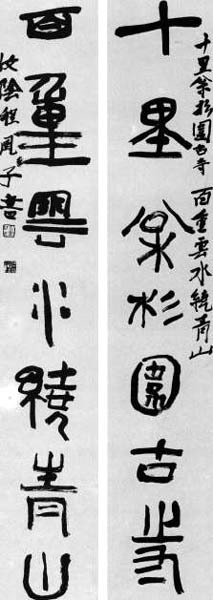 十里枀杉圍古寺 百重雲水繞青山
十里枀杉圍古寺
百重雲水繞青山
汝陰程風子書